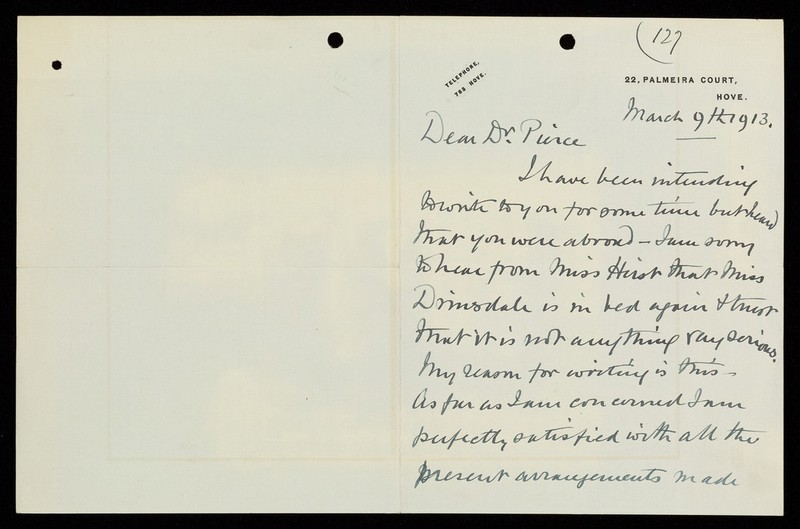 (127
TELEPHONE,
768 HOVE.
22, PALMEIRA COURT,
HOVE.
March 9th 1913.
Dear Dr. Pierce
I have been intending
to write to you for some time but heard
that you were abroad - I am sorry
to hear from Miss Hirst that Miss
Drimsdale is in bed again & trust
that it is not anything very serious.
My reason for writing is this -
As far as I am concerned I am
perfectly satisfied with all the
present arrangements made